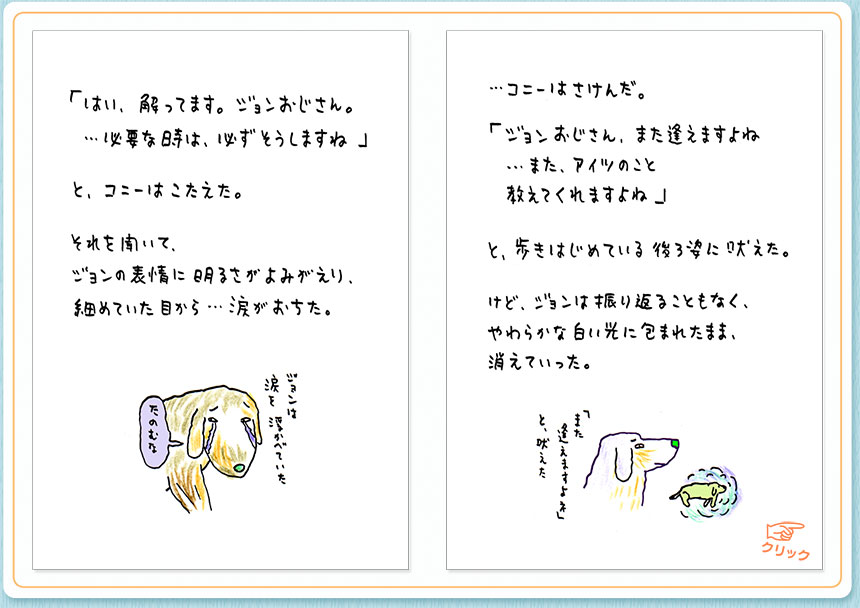 「はい、解ってます。ジョンおじさん。
…必要な時は、必ずそうしますね」
と、コニーはこたえた。
それを聞いて、
ジョンの表情に明るさがよみがえり、
細めていた目から…涙がおちた。
ジョンは
涙を浮かべていた
たのむな
…コニーはさけんだ。
「ジョンおじさん、また逢えますよね
…また、アイツのこと
教えてくれますよね」
と、歩きはじめている後ろ姿に吠えた。
けど、ジョンは振り返ることもなく、
やわらかな白い光に包まれたまま、
消えていった。
「また
逢えますよネ」
と、吠えた
クリック